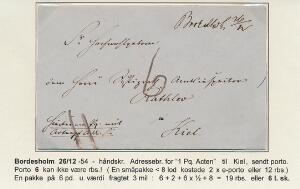 Bordesholm 26/12
Sr. Hochwohlgeboren
dem Herrn
6
Kiel
Bordesholm 26/12 -54 - håndskr. Adressebr. for "1 Pq. Acten" til Kiel, sendt porto.
Porto 6 kan ikke være rbs.! ( En småpakke < 8 lod kostede 2 x e-porto eller 12 rbs.)
En pakke på 6 pd. u. værdi fragtet 3 mil : 6 + 2 + 6 x ½ + 8 = 19 rbs. eller 6 l. sk.